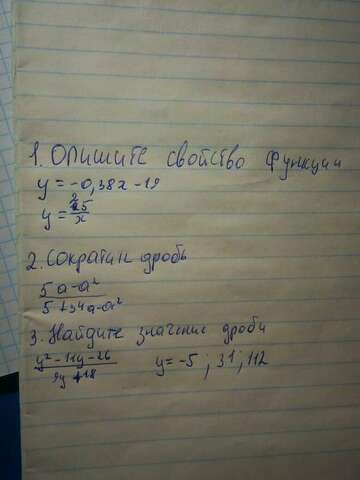 1. Опишите свойство функции
y = -0,38x - 19
y = 25/x
2. Сократить дробь
5a-a²
5+34a-a²
3. Найдите значение дроби
y² - 11y - 26
9y+18 y = -5; 31; 112